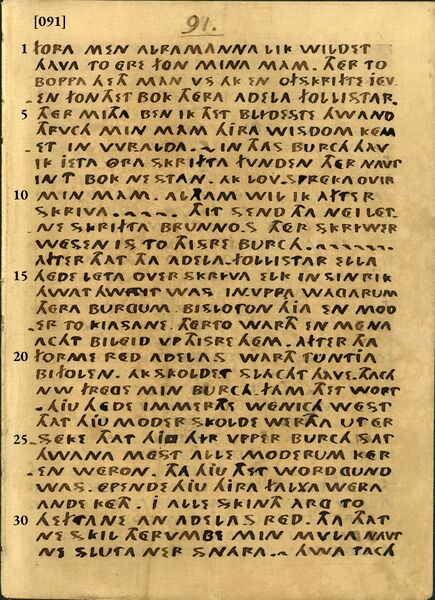 [091]
91.
1 FORA MEN ALRAMANNA LIK WILDET
HAVA TO ERE FON MINA MAM. THER TO
BOPPA HETH MAN VS AK EN OFSKRIFTE JEV
EN FON THET BOK THERA ADELA FOLLISTAR.
5 THER MITHA BEN IK THET BLIDESTE HWAND
THRVCH MIN MAM HIRA WISDOM KEM
ET IN VVRALDA. IN THAS BURCH HAV
IK JETA OTHRA SKRIFTA FUNDEN THER NAVT
IN'T BOK NE STAN. AK LOVSPREKA OVIR
10 MIN MAM. ALTHAM WIL IK AFTER
SKRIVA. THIT SEND THA NEI LET
NE SKRIFTA BRUNNO.S THER SKRIWER
WESEN IS TO THISRE BURCH.
AFTER THAT THA ADELA-FOLLISTAR ELLA
15 HEDE LETA OVERSKRIVA ELK IN SIN RIK
HWAT HWRIT WAS IN.VPPA WAGARUM
THERA BURGUM. BISLOTON HIA EN MOD
ER TO KJASANE. THERTO WARTH EN MENA
ACHT BILEID VP THISRE HEM. AFTER THA
20 FORME RED ADELAS WARTH TUNTJA
BIFOLEN. AK SKOLDET SLACHT HAVE. THACH
NW FREGE MIN BURCH.FAM THET WORT
HJU HEDE IMMERTHE WENICH WEST
THAT HJU MODER SKOLDE WERTHA UTER
25 SEKE THAT HJU HIR VPPER BURCH SAT
HWANA MEST ALLE MODERUM KER
EN WERON. THA HJU THET WORD GUND
WAS. EPENDE HJU HIRA FALXA WERA
ANDE KETH. J ALLE SKINTH ARG TO
30 HEFTANE AN ADELAS RED. THA THAT
NE SKIL THERVMBE MIN MVLA NAVT
NE SLUTA NER SNARA. HWA TACH